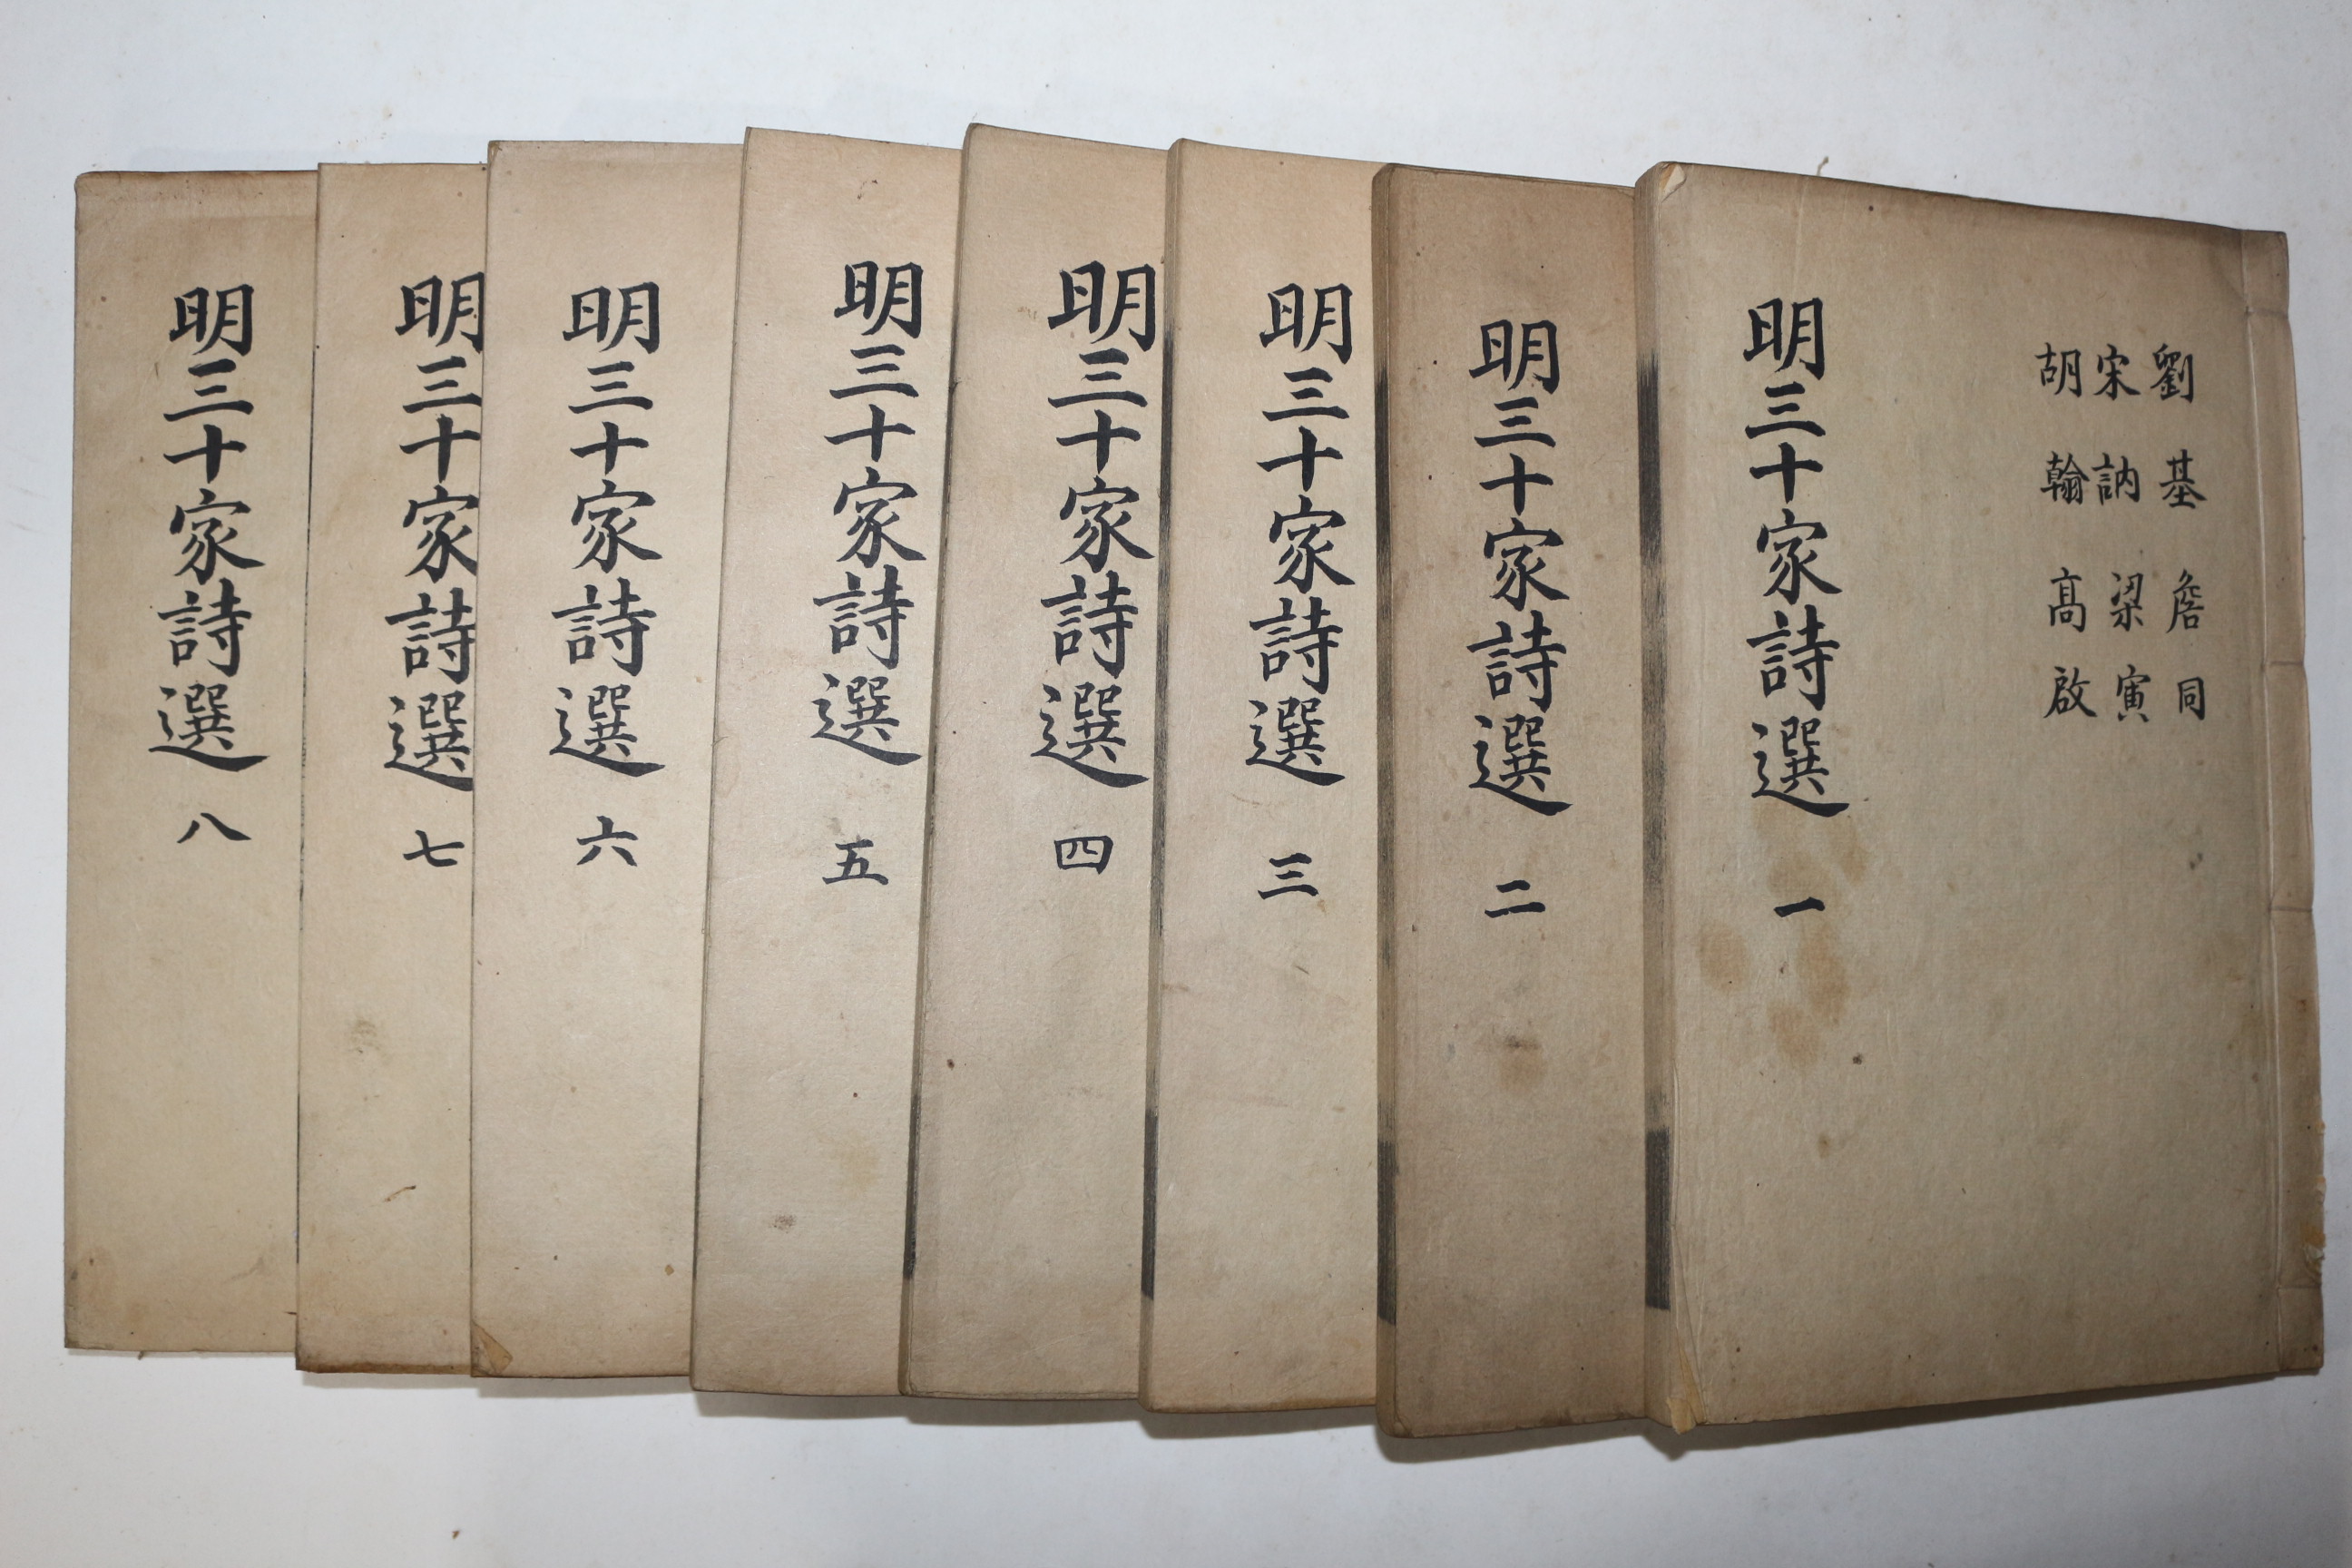 劉基 詹同
宋訥 梁寅
胡翰 高啟
明三十家詩選 一
明三十家詩選 二
明三十家詩選 三
明三十家詩選 四
明三十家詩選 五
明三十家詩選 六
明三十家詩選 七
明三十家詩選 八